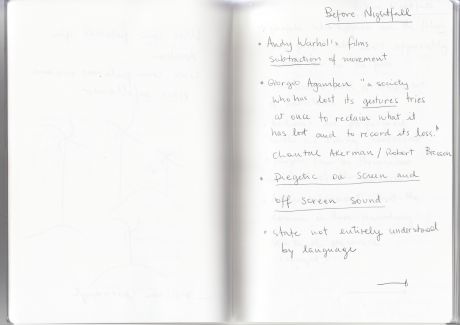 Before Nightfall
• Andy Warhol's films
subtraction of movement
• Giorgio Agamben "a society
who has lost its gestures tries
at once to reclaim what it
has lost and to record its loss."
Chantal Akerman / Robert Bresson
• Diegetic on screen and
off screen sound.
• state not entirely understood
by language